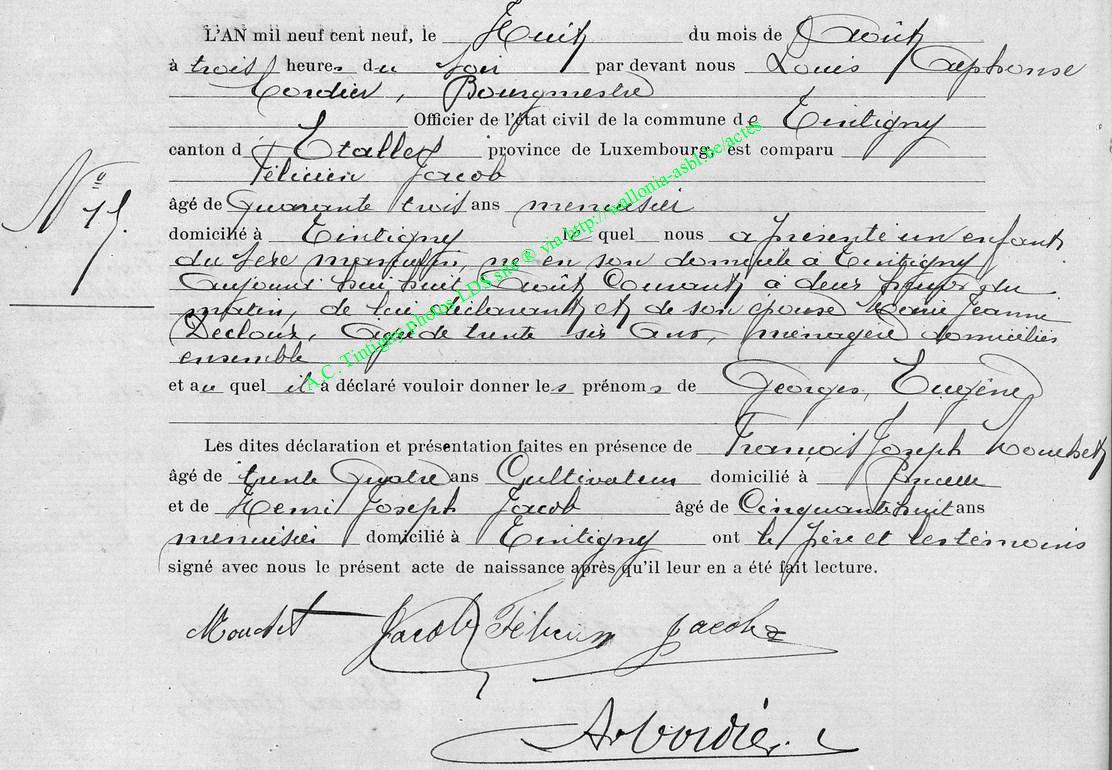 L'AN mil neuf cent neuf, le Huit du mois de Août
à trois heures du soir par devant nous Louis Alphonse
Cordier, Bourgmestre
Officier de l'état civil de la commune de Tintigny
canton d'Etalle province de Luxembourg, est comparu
Félicien Jacob
N° 15.
âgé de Quarante trois ans menuisier
domicilié à Tintigny le quel nous a présenté un enfant
du sexe masculin, né en son domicile à Tintigny
Aujourd'hui huit Août Courant à deux heures du
matin, de lui déclarant et de son épouse Marie Jeanne
Agée de trente six Ans, ménagère domiciliés
ensemble
et au quel il a déclaré vouloir donner les prénoms de Georges, Eugène
Les dites déclaration et présentation faites en présence de François Joseph Mouchet
âgé de trente Quatre ans Cultivateur domicilié à
et de Henri Joseph Jacob âgé de Cinquante huit ans
menuisier domicilié à Tintigny ont le père et les témoins
signé avec nous le présent acte de naissance après qu'il leur en a été fait lecture.
Mouchet Jacob Félicien Jacob
A.C. Tintigny photos LDS site ® via http://wallonia-asbl.be/actes